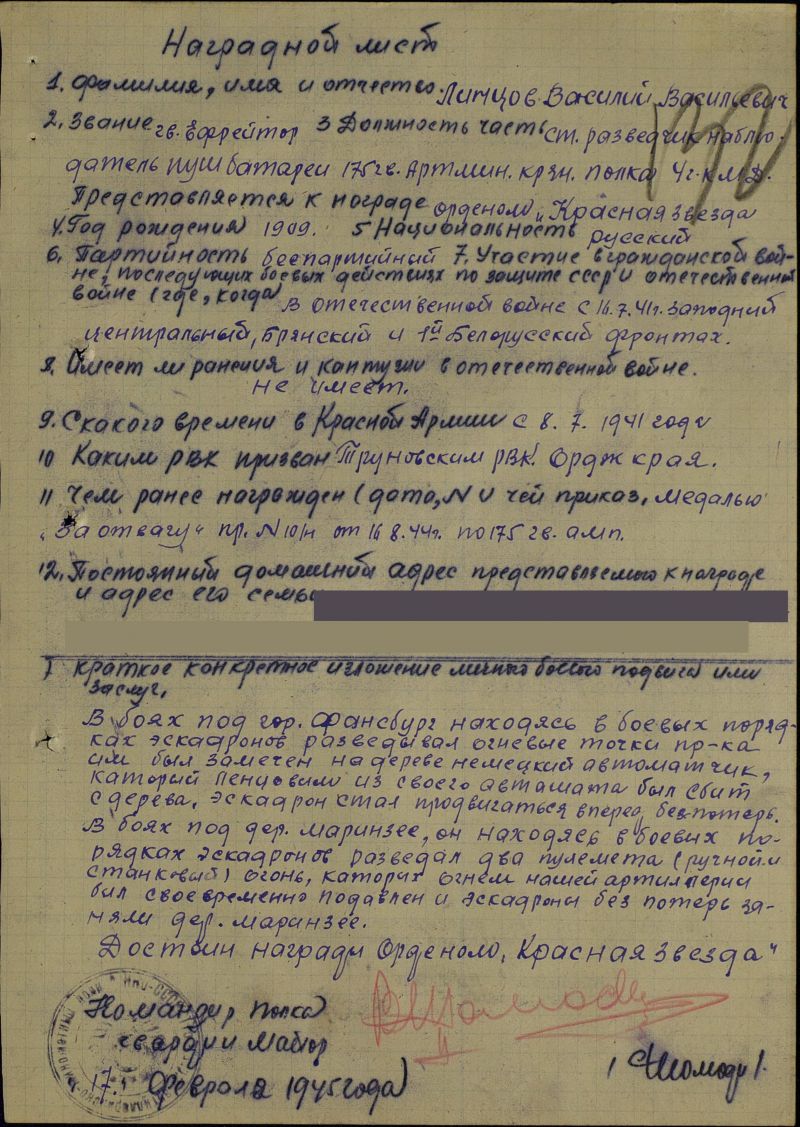 Наградной лист
1. Фамилия, имя и отчество. Василий Васильевич
2, Звание гв. Ефрейтор 3 Должность часть ст. разведчик наблю-
датель пушбатареи 175 гв. Артмин. полка 4 г.к.К.Д.
Представляется к награде орденом „Красная звезда
4. Год рождения 1909. 5 Национальность русский
6, Партийность беспартийный 7. Участие в гражданской вой-
не, последующих боевых действиях по защите СССР и отечественной
войне (где, когда В отечественной войне с 16.7.41г. Западный
центральный, Брянский и 1й Белорусский фронтах.
8, Имеет ли ранения и кантузии в отечественной войне.
не имеет.
9. С какого времени в Красной Армии с 8. 7. 1941 года
10 Каким РВК призван Труновским РВК. Орджкрая.
11 Чем ранее награжден (дата, N и чей приказ. медалью
„За отвагу" пр. N 10/н от 16 8.44г. по 175 гв. амп.
12. Постоянный домашний адрес представляемого к награде
и адрес его семьи
I краткое конкретное изложение личного боевого подвига или
заслуг,
В боях под гор. Фансбург находясь в боевых поряд-
ках эскадронов разведывал огневые точки пр-ка
им был замечен на дереве немецкий автоматчик,
каторый из своего автамата был сбит
с дерева, эскадрон стал продвигаться вперед без потерь.
В боях под дер. Маринзее, он находясь в боевых по-
рядках эскадронов разведал два пулемета (ручной и
станковый) огонь, каторых огнем нашей артиллерии
был своевременно подавлен и эскадроны без потерь за-
няли дер. Маринзее.
Достоин награды Орденом „Красная звезда"
Командир полка
гвардии майор
17. Февраля 1945 года